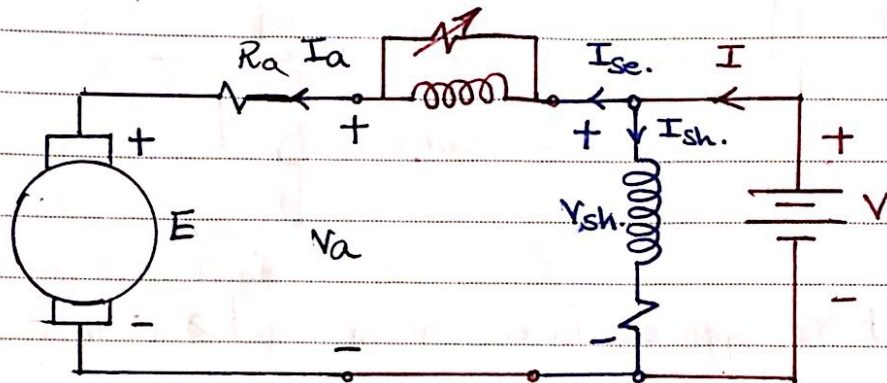 Ra Ia Ise. I
+ + Ish. +
+ E Va Vsh. V
- - - -